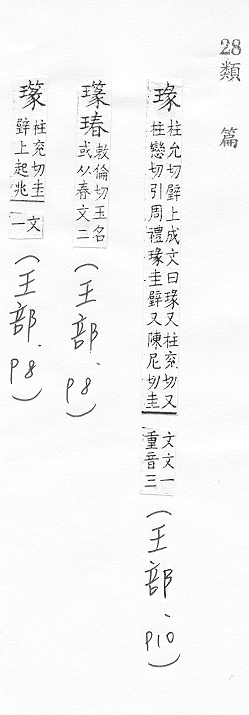 28類篇
瑑
柱允切璧上成文曰瑑又柱兖切又
柱戀切引周禮瑑圭璧又陳尼切圭
文文一
重音三
(王部.p10)
瑃
敕倫切玉名
或从春文二
(王部.p8)
柱兖切圭
璧上起兆
文
一
(王部.p8)